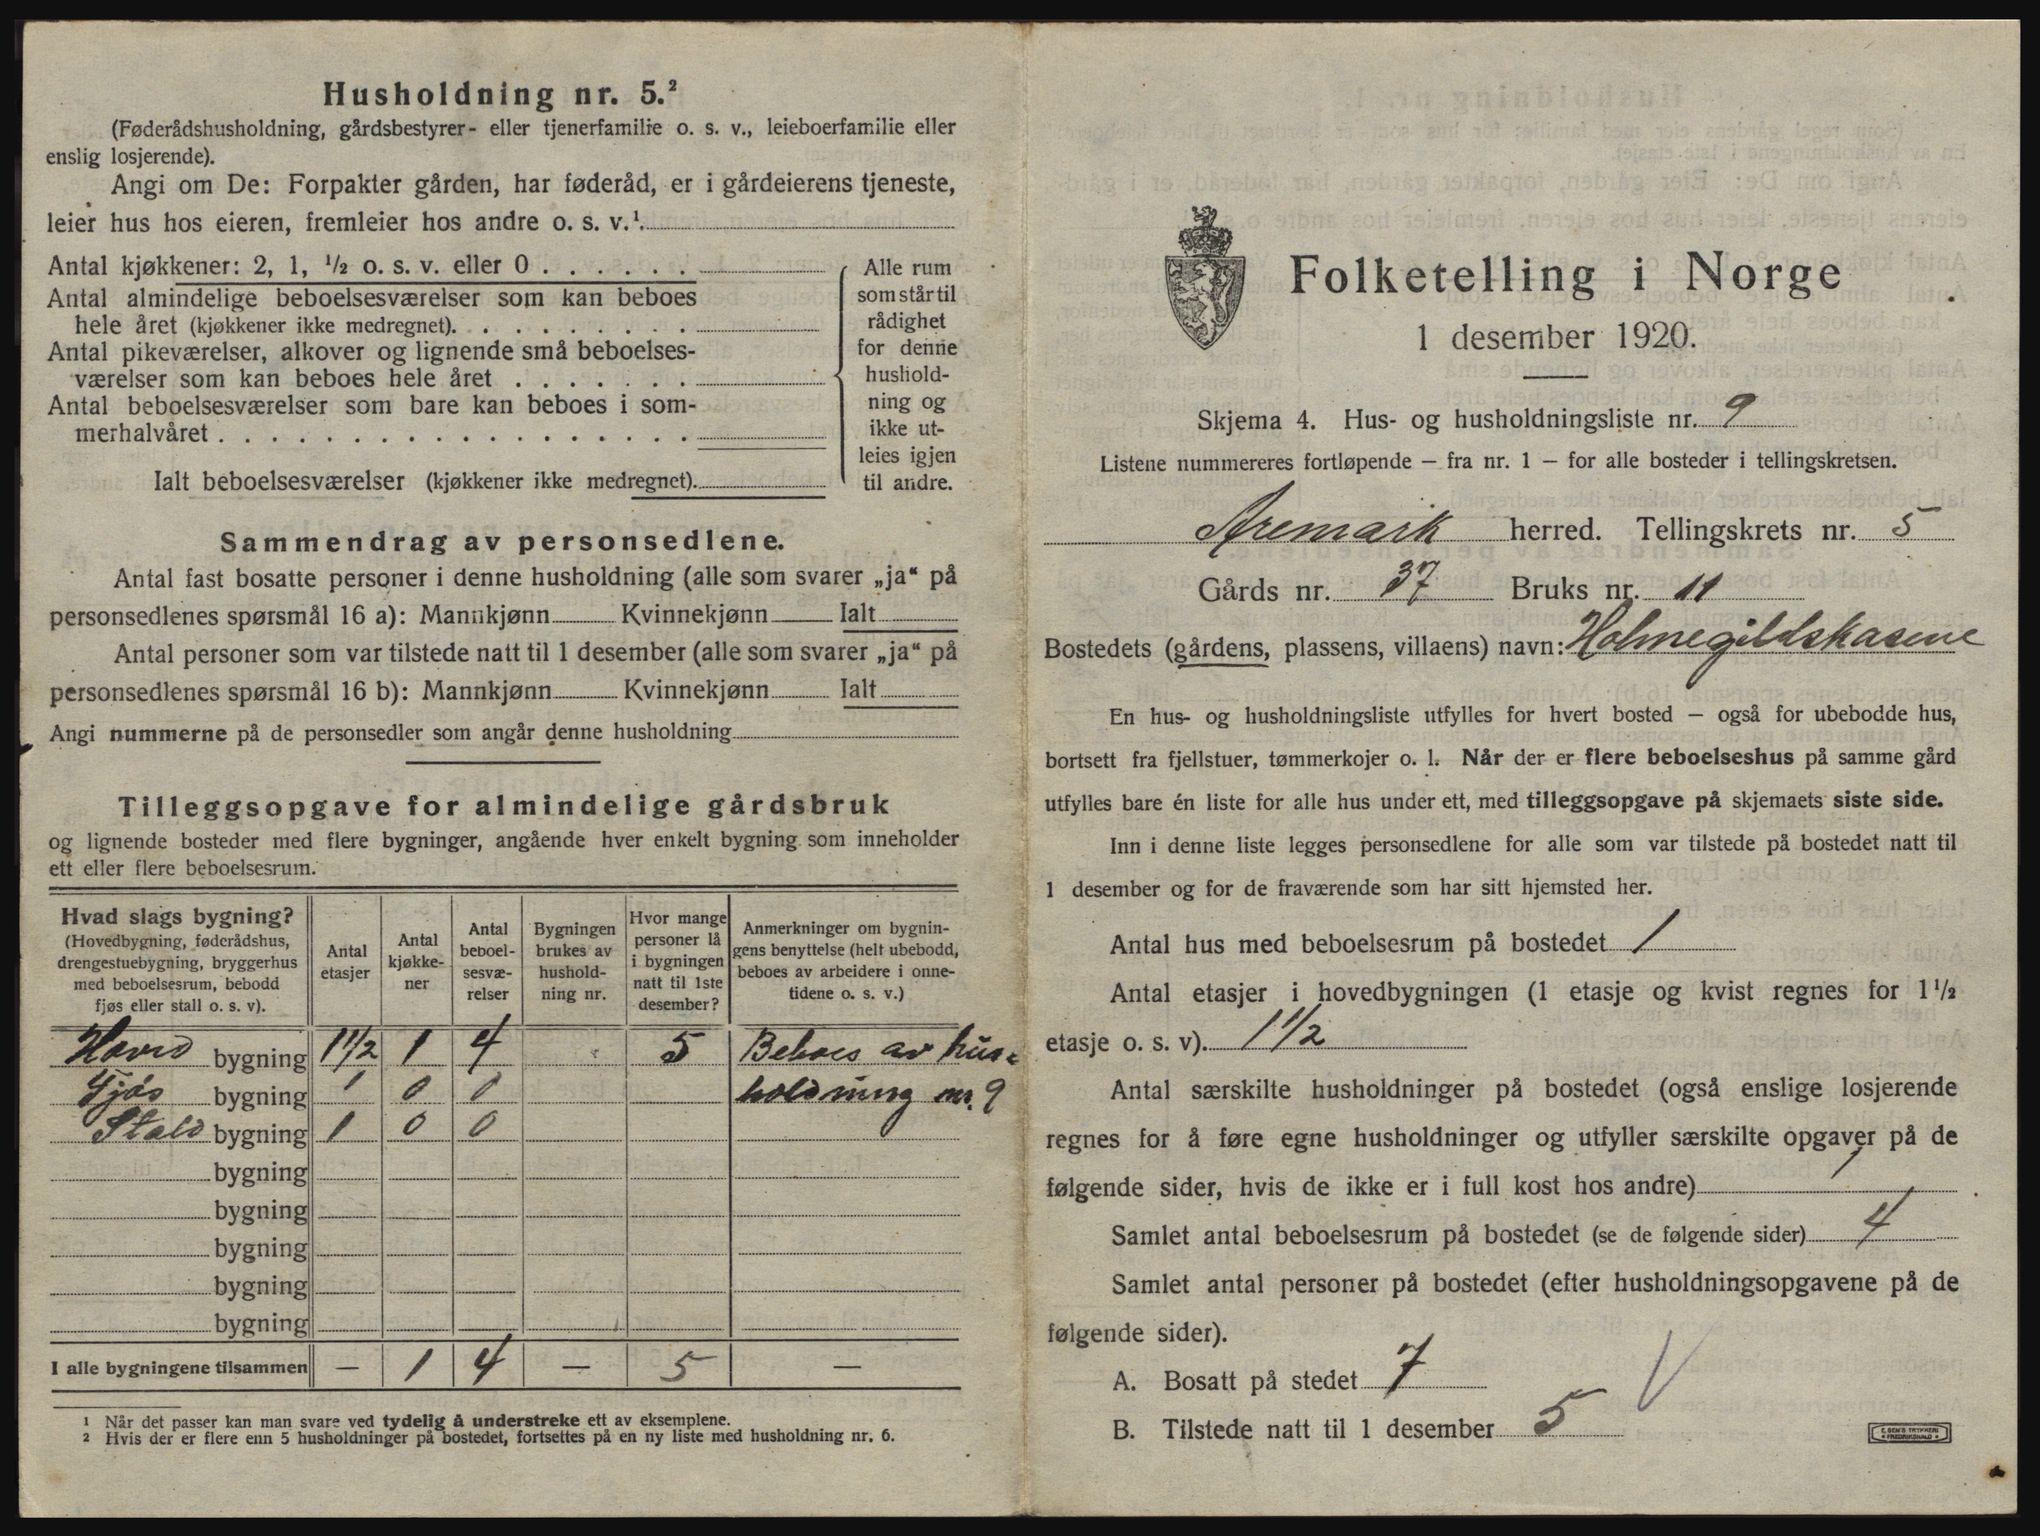 Husholdning nr. 5.²
(Føderådshusholdning, gårdsbestyrer- eller tjenerfamilie o. s. v., leieboerfamilie eller
enslig losjerende).
Angi om De: Forpakter gården, har føderåd, er i gårdeierens tjeneste,
leier hus hos eieren, fremleier hos andre o. s. v.¹
Antal kjøkkener: 2, 1, ½ o. s. v. eller 0 . . . . . .
Antal almindelige beboelsesværelser som kan beboes
hele året (kjøkkener ikke medregnet). . . . . . . . .
Antal pikeværelser, alkover og lignende små beboelses-
værelser som kan beboes hele året . . . . . . .
Antal beboelsesværelser som bare kan beboes i som-
merhalvåret . . . . . . . . . . . . . . . . . .
Ialt beboelsesværelser (kjøkkener ikke medregnet).
Alle rum
som står til
rådighet
for denne
hushold-
ning og
ikke ut-
leies igjen
til andre.
Sammendrag av personsedlene.
Antal fast bosatte personer i denne husholdning (alle som svarer „ja“ på
personsedlenes spørsmål 16 a): Mannkjønn Kvinnekjønn Ialt
Antal personer som var tilstede natt til 1 desember (alle som svarer „ja“ på
personsedlenes spørsmål 16 b): Mannkjønn Kvinnekjønn Ialt
Angi nummerne på de personsedler som angår denne husholdning
Tilleggsopgave for almindelige gårdsbruk
og lignende bosteder med flere bygninger, angående hver enkelt bygning som inneholder
ett eller flere beboelsesrum.
Hvad slags bygning?
(Hovedbygning, føderådshus,
drengestuebygning, bryggerhus
med beboelsesrum, bebodd
fjøs eller stall o. s. v).
Antal
etasjer
Antal
kjøkke-
ner
Antal
beboel-
sesvæ-
relser
Bygningen
brukes av
hushold-
ning nr.
Hvor mange
personer lå
i bygningen
natt til 1ste
desember?
Anmerkninger om bygnin-
gens benyttelse (helt ubebodd,
beboes av arbeidere i onne-
tidene o. s. v.)
Hoved bygning 1½ 1 4 5 Beboes av hus-
Fjøs bygning 1 0 0 holdning nr. 9
Stald bygning 1 0 0
bygning
bygning
bygning
bygning
bygning
I alle bygningene tilsammen — 1 4 — 5 —
¹ Når det passer kan man svare ved tydelig å understreke ett av eksemplene.
² Hvis der er flere enn 5 husholdninger på bostedet, fortsettes på en ny liste med husholdning nr. 6.
Folketelling i Norge
1 desember 1920.
Skjema 4. Hus- og husholdningsliste nr. 9
Listene nummereres fortløpende – fra nr. 1 – for alle bosteder i tellingskretsen.
Aremark herred. Tellingskrets nr. 5
Gårds nr. 37 Bruks nr. 11
Bostedets (gårdens, plassens, villaens) navn: Holmegildskasene
En hus- og husholdningsliste utfylles for hvert bosted – også for ubebodde hus,
bortsett fra fjellstuer, tømmerkojer o. l. Når der er flere beboelseshus på samme gård
utfylles bare én liste for alle hus under ett, med tilleggsopgave på skjemaets siste side.
Inn i denne liste legges personsedlene for alle som var tilstede på bostedet natt til
1 desember og for de fraværende som har sitt hjemsted her.
Antal hus med beboelsesrum på bostedet 1
Antal etasjer i hovedbygningen (1 etasje og kvist regnes for 1½
etasje o. s. v). 1½
Antal særskilte husholdninger på bostedet (også enslige losjerende
regnes for å føre egne husholdninger og utfyller særskilte opgaver på de
følgende sider, hvis de ikke er i full kost hos andre) 1
Samlet antal beboelsesrum på bostedet (se de følgende sider) 4
Samlet antal personer på bostedet (efter husholdningsopgavene på de
følgende sider).
A. Bosatt på stedet 7
B. Tilstede natt til 1 desember 5
E. SEM'S TRYKKERI
FREDRIKSHALD